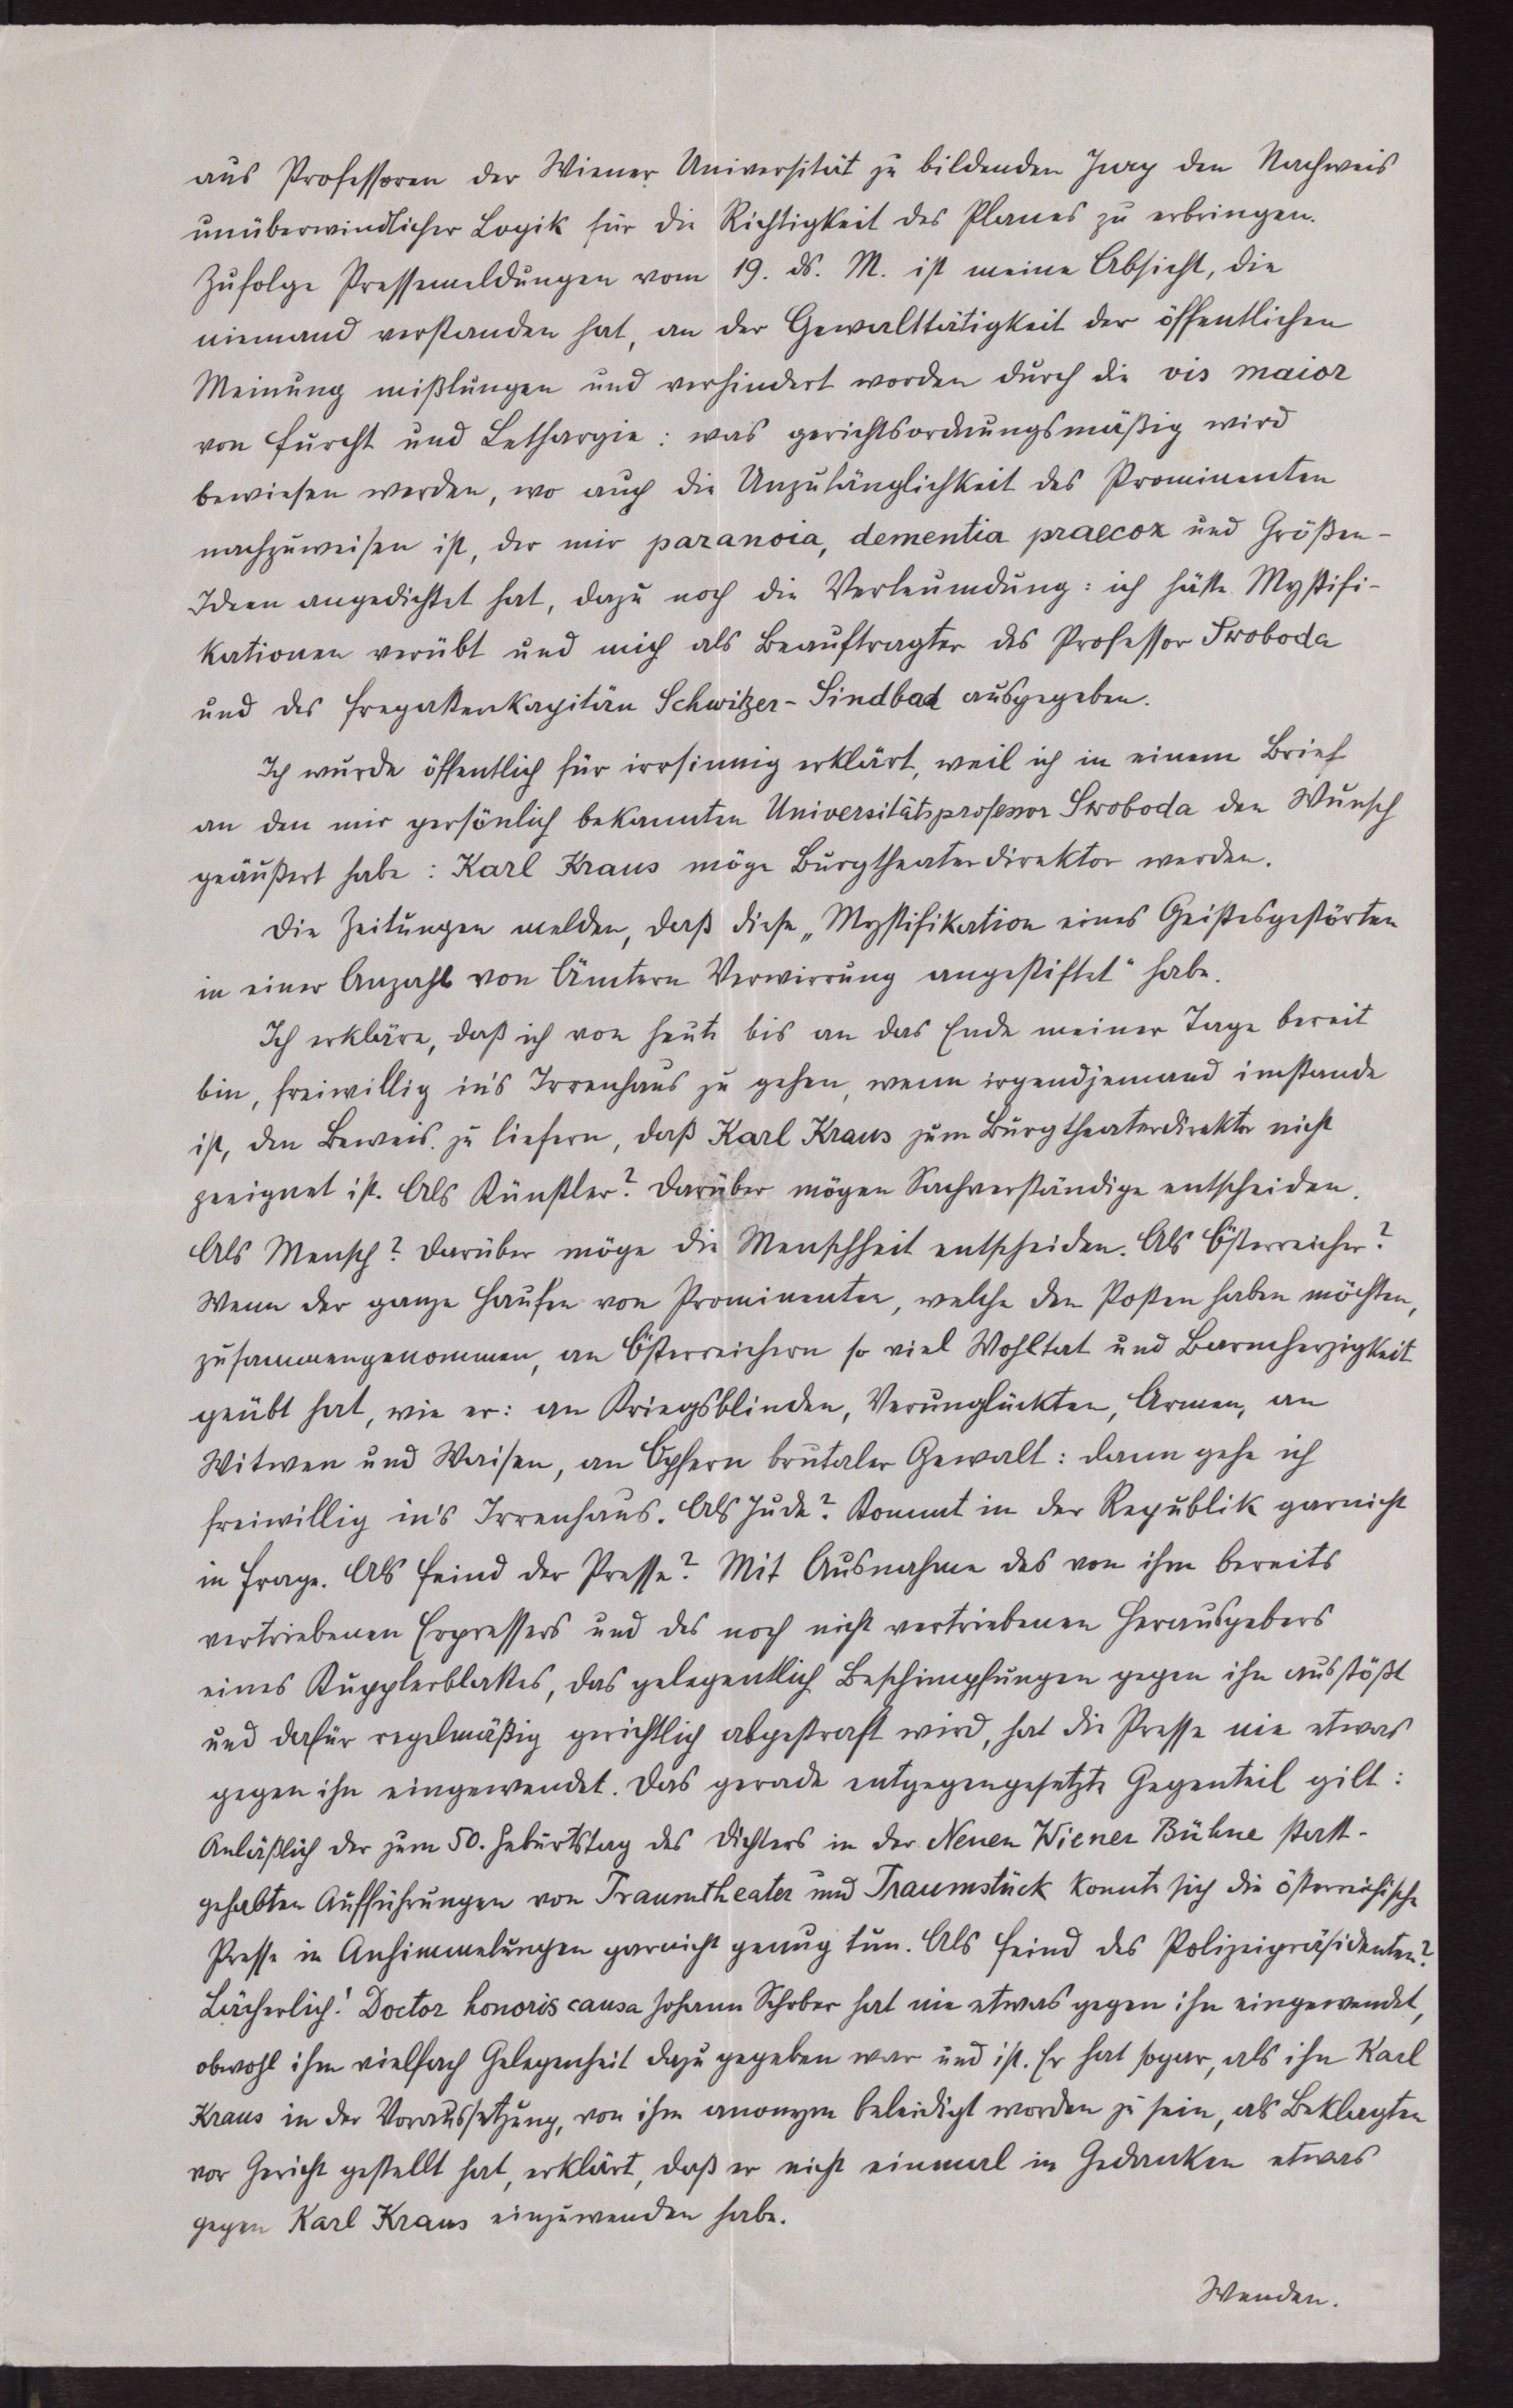 aus Professoren der Wiener Universität zu bildenden Jury den Nachweis
unüberwindlicher Logik für die Richtigkeit des Planes zu erbringen.
Zufolge Pressemeldungen vom 19. ds. M. ist meine Absicht, die
niemand verstanden hat, an der Gewalttätigkeit der öffentlichen
Meinung mißlungen und verhindert worden durch die vis maior
von Furcht und Lethargie: was gerichtsordnungsmäßig wird
bewiesen werden, wo auch die Unzulänglichkeit des Prominenten
nachzuweisen ist, der mir paranoia, dementia praecox und Größen-
Ideen angedichtet hat, dazu noch die Verleumdung: ich hätte Mystifi-
kationen verübt und mich als Beauftragter des Professor Swoboda
und des Fregattenkapitän Schwitzer-Sindbad ausgegeben.
Ich wurde öffentlich für irrsinnig erklärt, weil ich in einem Brief
an den mir persönlich bekannten Universitätsprofessor Swoboda den Wunsch
geäußert habe: Karl Kraus möge Burgtheaterdirektor werden.
Die Zeitungen melden, daß diese „Mystifikation eines Geistesgestörten
in einer Anzahl von Ämtern Verwirrung angestiftet" habe.
Ich erkläre, daß ich von heute bis an das Ende meiner Tage bereit
bin, freiwillig in's Irrenhaus zu gehen, wenn irgendjemand imstande
ist, den Beweis zu liefern, daß Karl Kraus zum Burgtheaterdirektor nicht
geeignet ist. Als Künstler? Darüber mögen Sachverständige entscheiden.
Als Mensch? Darüber möge die Menschheit entscheiden. Als Österreicher?
Wenn der ganze Haufen von Prominenten, welche den Posten haben möchten,
zusammengenommen, an Österreichern so viel Wohltat und Barmherzigkeit
geübt hat, wie er: an Kriegsblinden, Verunglückten, Armen, an
Witwen und Waisen, an Opfern brutaler Gewalt: dann gehe ich
freiwillig in's Irrenhaus. Als Jude? Kommt in der Republik garnicht
in Frage. Als Feind der Presse? Mit Ausnahme des von ihm bereits
vertriebenen Erpressers und des noch nicht vertriebenen Herausgebers
eines Kupplerblattes, das gelegentlich Beschimpfungen gegen ihn ausstößt
und dafür regelmäßig gerichtlich abgestraft wird, hat die Presse nie etwas
gegen ihn eingewendet. Das gerade entgegengesetzte Gegenteil gilt:
Anläßlich der zum 50. Geburtstag des Dichters in der Neuen Wiener Bühne statt-
gehabten Aufführungen von Traumtheater und Traumstück konnte sich die österreichische
Presse in Anhimmelungen garnicht genug tun. Als Feind des Polizeipräsidenten?
Lächerlich! Doctor honoris causa Johann Schober hat nie etwas gegen ihn eingewendet,
obwohl ihm vielfach Gelegenheit dazu gegeben war und ist. Er hat sogar, als ihn Karl
Kraus in der Voraussetzung, von ihm anonym beleidigt worden zu sein, als Beklagten
vor Gericht gestellt hat, erklärt, daß er nicht einmal in Gedanken etwas
gegen Karl Kraus einzuwenden habe.
Wenden.